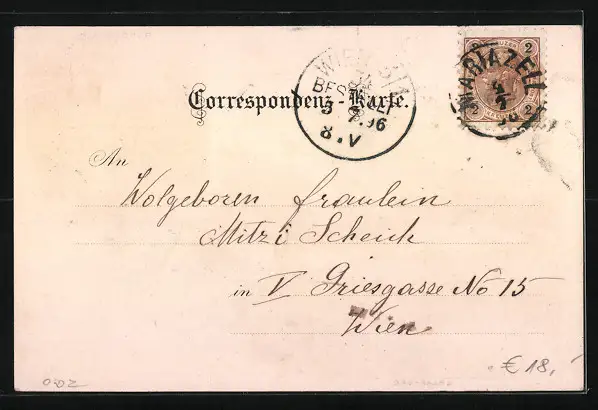 Correspondenz-Karte.
WIEN
BESTELLT
5 7.96
8.V
2 KREUZER 2
MARIAZELL
2 2
An
Wolgeboren fraulein
Mitzi Scheick
in V Griesgasse No 15
Wien
€ 18,-